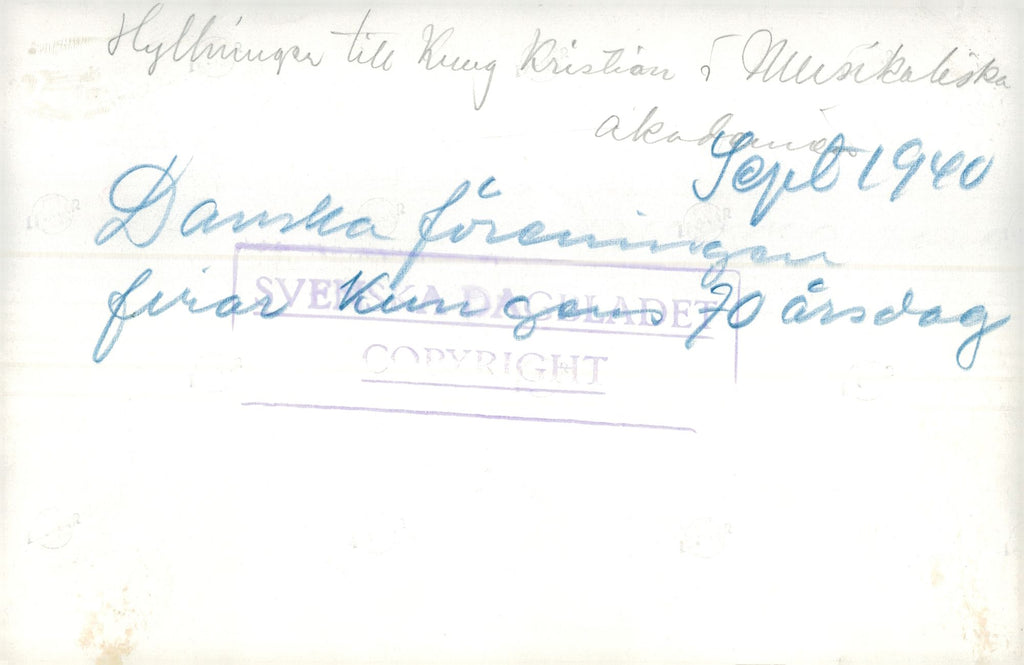 Hyllningen till Kung Kristian i Musikaliska
akademien
Sept 1940
Danska föreningen
firar Kungens 70 årsdag
SVENSKA DAGBLADET
COPYRIGHT